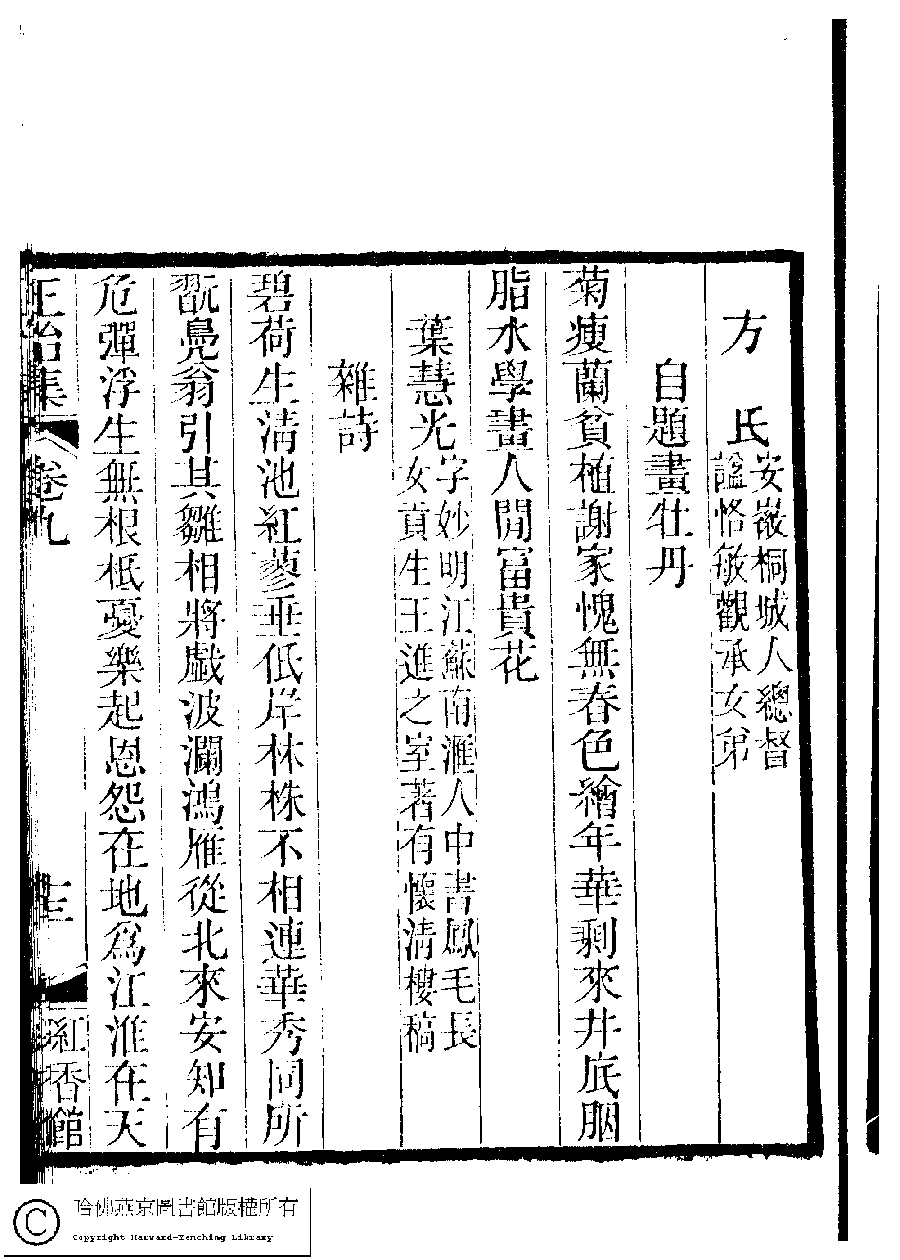 方　氏安徽桐城人總督
諡恪敏觀承女弟
自題畫牡丹
菊瘦蘭貧植謝家愧無春色繪年華剩來井底胭
脂水學畫人閒富貴花
葉慧光字妙明江蘇南滙人中書鳳毛長
女貢生王進之室著有懷清樓稿
雜詩
碧荷生淸池紅蓼垂低岸林株不相連華秀同所
翫鳧翁引其雛相將戱波瀾鴻雁從北來安知有
危彈浮生無根柢憂樂起恩怨在地爲江淮在天
正始集
卷九
紅香館
哈佛燕京圖書館版權所有
Copyright Harvard-Yenching Library